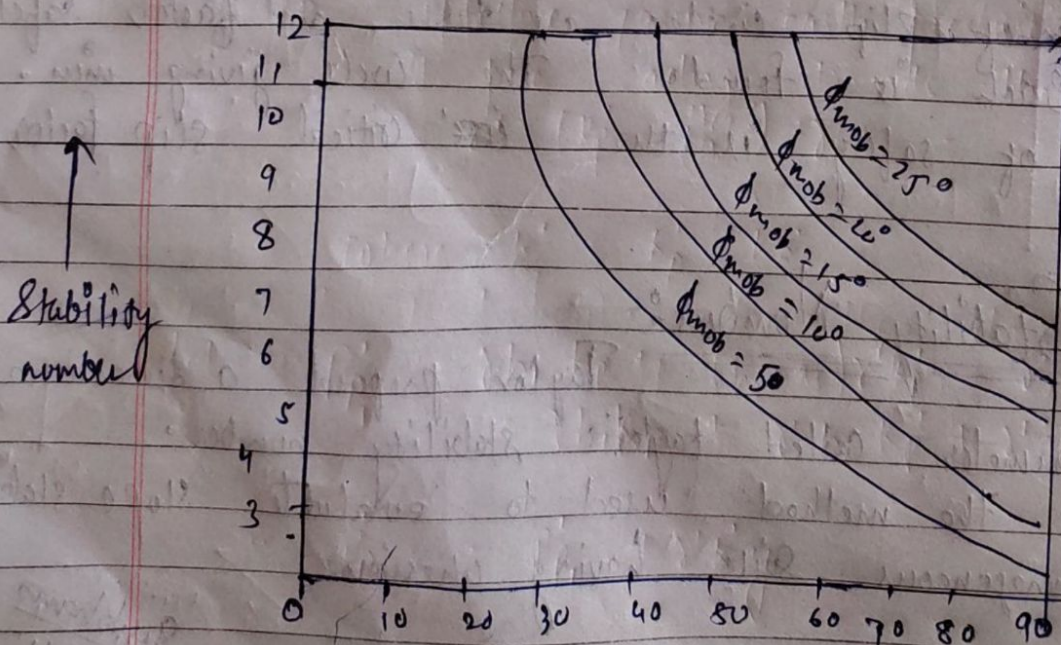 12
11
10
9
8
7
6
5
4
3
Stability
number
ϕmob = 25°
ϕmob = 20°
ϕmob = 15°
ϕmob = 10°
ϕmob = 5°
0 10 20 30 40 50 60 70 80 90